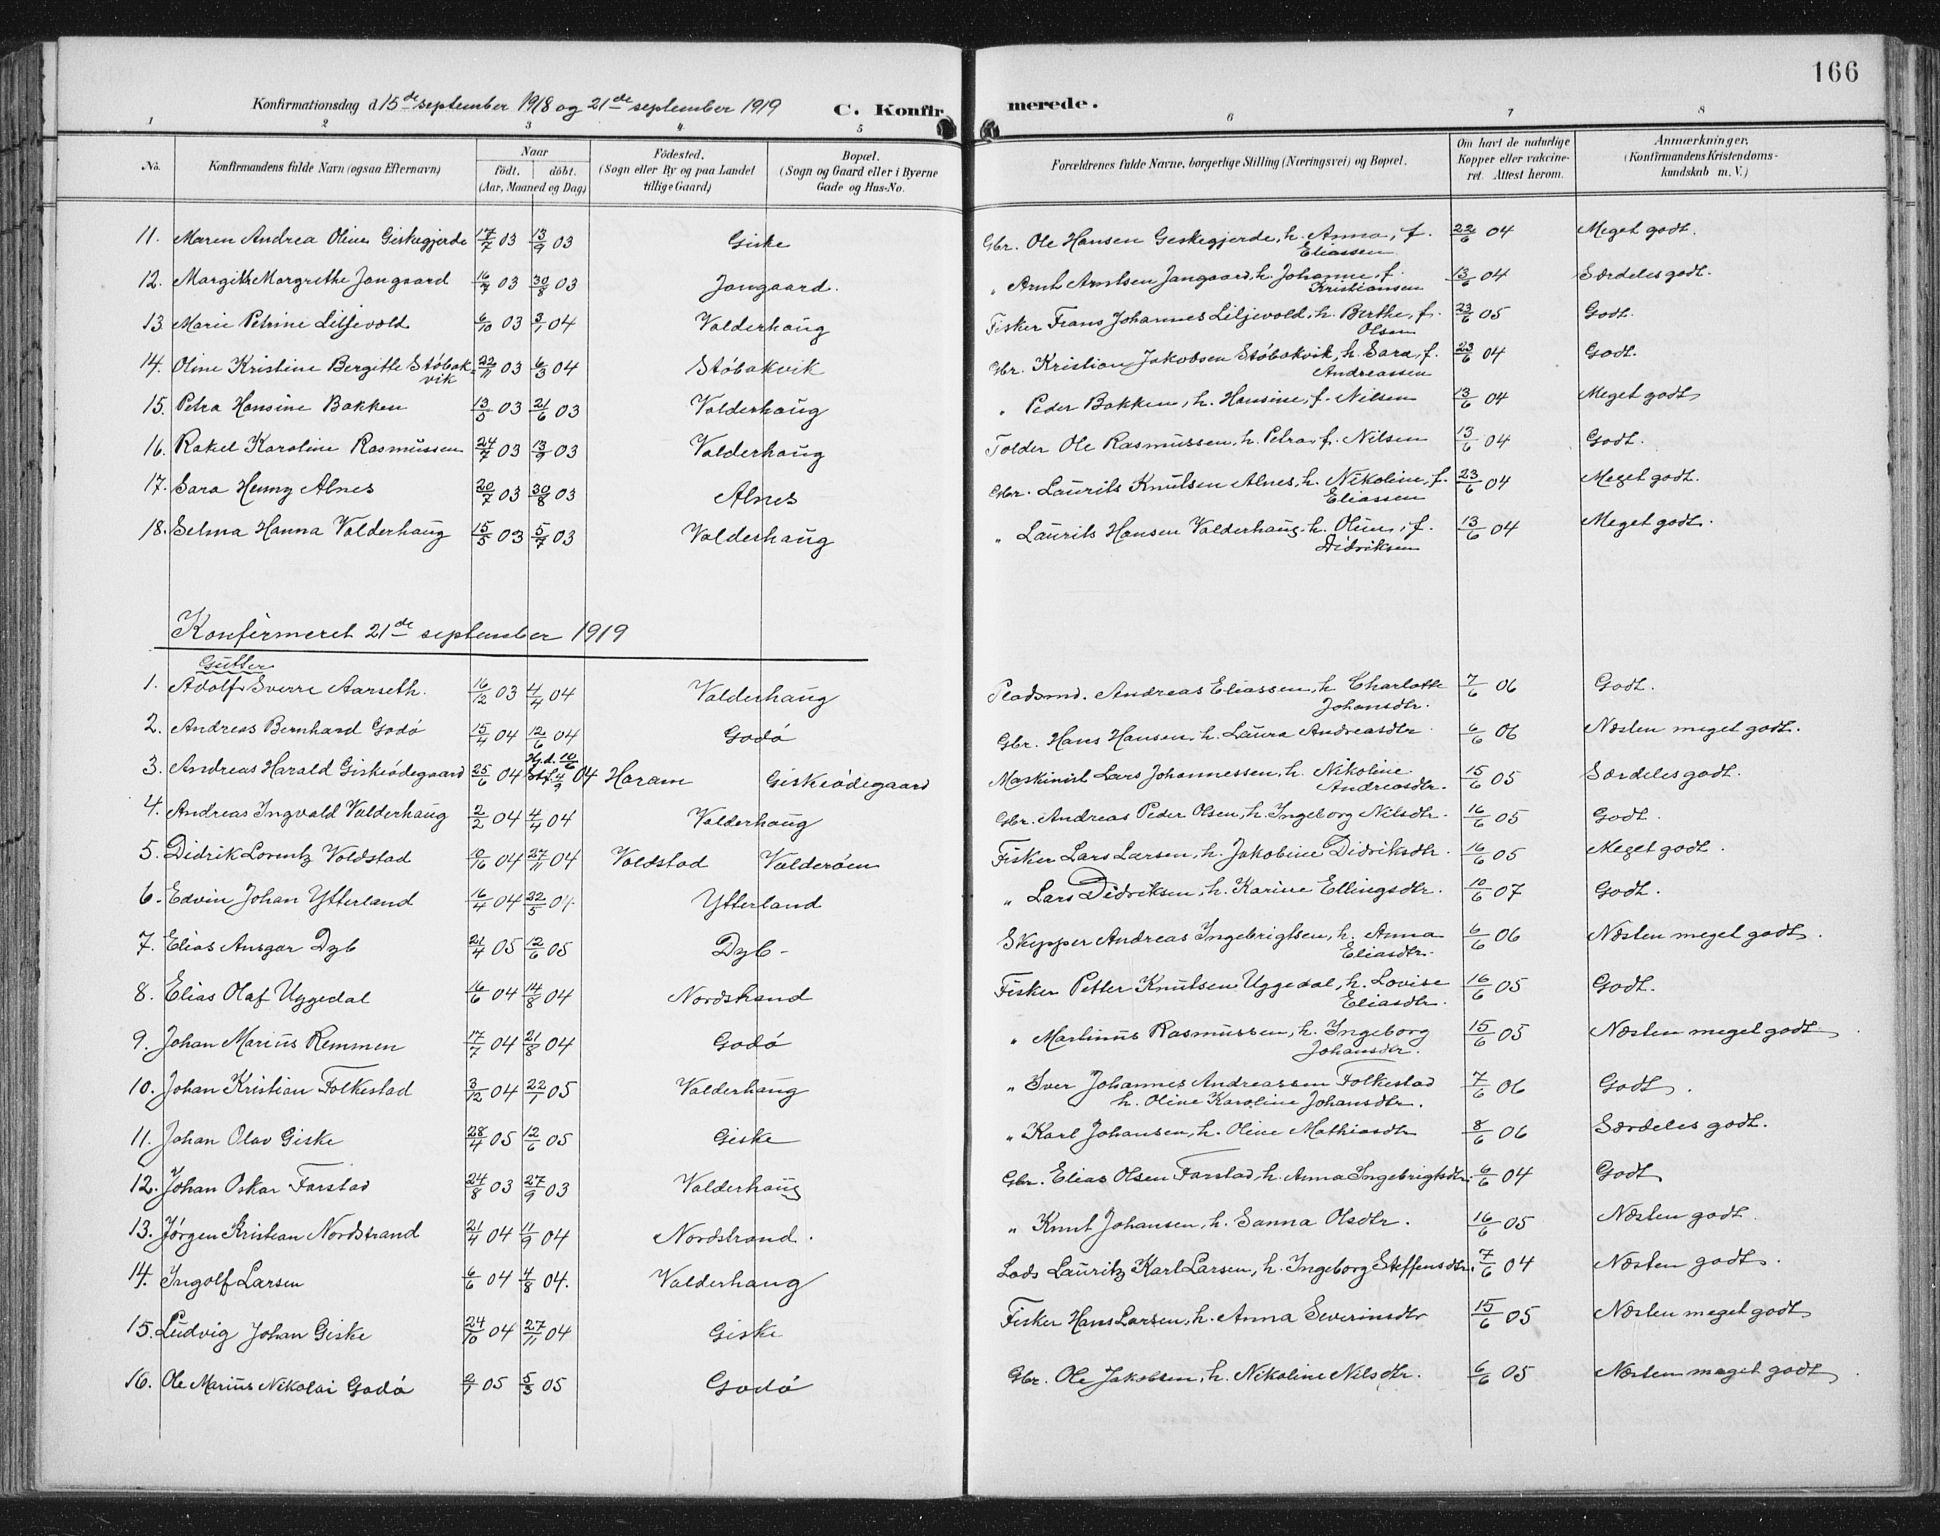 166
Konfirmationsdag d. 15de september 1918 og 21de september 1919 C. Konfirmerede.
1 2 3 4 5 6 7 8
No. Konfirmandens fulde Navn (ogsaa Efternavn) Naar født. døbt. (Aar, Maaned og Dag) Fødested. (Sogn eller By og paa Landet tillige Gaard) Bopæl. (Sogn og Gaard eller i Byerne Gade og Hus-No. Forældrenes fulde Navne, borgerlige Stilling (Næringsvei) og Bopæl. Om havt de naturlige Kopper eller vakcineret. Attest herom. Anmærkninger. (Konfirmandens Kristendomskundskab m. V.)
11. Maren Andrea Oline Giskegjerde 17/7 03 13/9 03 Giske Gbr. Ole Hansen Geskegjerde, h. Anna, f. Eliassen 22/6 04 Meget godt.
12. Margith Margrethe Jangaard 16/7 03 30/8 03 Jangaard. " Arnt Arntsen Jangaard, h. Johanne, f. Kristiansen 13/6 04 Særdeles godt.
13 Marie Petrine Liljevold 6/10 03 3/1 04 Valderhaug Fisker Frans Johannes Liljevold, h. Berthe, f. Olsen 23/6 05 Godt.
14. Oline Kristine Bergitte Støbakvik 22/11 03 6/3 04 Støbakvik Gbr. Kristian Jakobsen Støbakvik, h. Sara, f. Andreassen 23/6 04 Godt.
15. Petra Hansine Bakken 13/5 03 21/6 03 Valderhaug " Peder Bakken, h. Hansine, f. Nilsen 13/6 04 Meget godt
16. Rakel Karoline Rasmussen 24/7 03 13/9 03 Valderhaug Tolder Ole Rasmussen, h. Petra, f. Nilsen 13/6 04 Godt.
17. Sara Henny Alnes 20/7 03 30/8 03 Alnes Gbr. Laurits Knutsen Alnes, h. Nikoline, f. Eliassen 23/6 04 Meget godt.
18. Selma Hanna Valderhaug 15/5 03 5/7 03 Valderhaug " Laurits Hansen Valderhaug, h. Oline, f. Didriksen 13/6 04 Meget godt.
Konfirmeret 21de september 1919
Gutter
1. Adolf Sverre Aarseth. 16/12 03 4/4 04 Valderhaug Pladsmd. Andreas Eliassen, h. Charlotte Johansdtr. 7/6 06 Godt.
2. Andreas Bernhard Godø 15/4 04 12/6 04 Godø Gbr. Hans Hansen, h. Laura Andreasdtr. 6/6 06 Næsten meget godt.
3. Andreas Harald Giskeødegaard 25/6 04 Hjd. 10/6 Stf. 4/9 04 Haram Giskeødegaard Maskinist Lars Johannessen, h. Nikoline Andreasdtr. 15/6 05 Særdeles godt.
4. Andreas Ingvald Valderhaug 2/2 04 4/4 04 Valderhaug Gbr. Andreas Peder Olsen, h. Ingeborg Nilsdtr. 16/6 05 Godt.
5. Didrik Lorentz Voldstad 04 27/11 04 Voldstad Valderøen Fisker Lars Larsen, h. Jakobine Didriksdtr. 16/6 05 Meget godt.
6. Edvin Johan Ytterland 16/4 04 22/5 04. Ytterland " Lars Didriksen, h. Karine Ellingsdtr. 10/6 07 Godt.
7. Elias Ansgar Dyb 21/4 05 12/6 05 Dyb - Skypper Andreas Ingebrigtsen, h. Anna Eliasdtr. 6/6 06 Næsten meget godt.
8. Elias Olaf Uggedal 16/6 04 14/8 04 Nordstrand Fisker Petter Knutsen Uggedal, h. Lovise Eliasdtr. 16/6 05 Godt.
9. Johan Marius Remmen 17/7 04 21/8 04 Godø " Martinus Rasmussen, h. Ingeborg Johansdtr. 15/6 05 Næsten meget godt.
10. Johan Kristian Folkestad 3/12 04 22/1 05 Valderhaug " Iver Johannes Andreassen Folkestad h. Oline Karoline Johansdtr. 7/6 06 Godt.
11. Johan Olav Giske 28/4 05 12/6 05 Giske " Karl Johansen, h. Oline Mathiasdtr 8/6 06 Særdeles godt.
12. Johan Oskar Farstad 24/8 03 27/9 03 Valderhaug Gbr. Elias Olsen Farstad, h. Anna Ingebrigtsdtr. 6/6 04 Godt
13. Jørgen Kristian Nordstrand 21/4 04 11/9 04 Nordstrand. " Knut Johansen, h. Sanna Olsdtr. 16/6 05 Næsten godt
14. Ingolf Larsen 6/6 04 4/8 04. Valderhaug Lods Lauritz Karl Larsen, h. Ingeborg Steffensdtr. 7/6 04 Næsten godt.
15. Ludvig Johan Giske 24/10 04 27/11 04 Giske Fisker Hans Larsen, h. Anna Severinsdtr 15/6 05 Næsten meget godt
16. Ole Marius Nikolai Godø 05 5/3 05 Godø Gbr. Ole Jakobsen, h. Nikoline Nilsdtr. 6/6 05 Næsten meget godt